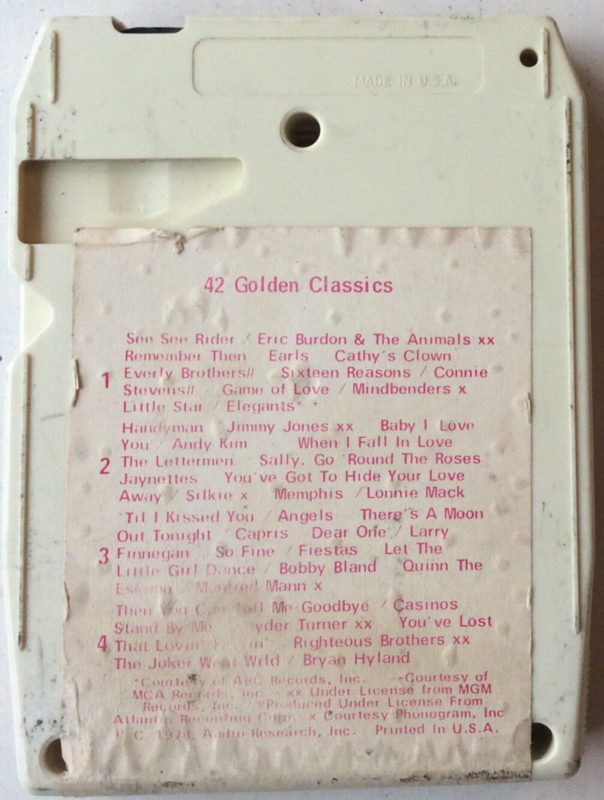 MADE IN U.S.A.
42 Golden Classics
See See Rider / Eric Burdon & The Animals xx
Remember Then Earls Cathy's Clown
1 Everly Brothers// Sixteen Reasons / Connie
Stevens// Game of Love / Mindbenders x
Little Star / Elegants*
Handyman Jimmy Jones xx Baby I Love
You / Andy Kim When I Fall In Love
2 The Lettermen Sally, Go 'Round The Roses
Jaynettes You've Got To Hide Your Love
Away Silkie x Memphis / Lonnie Mack
'Til I Kissed You / Angels There's A Moon
Out Tonight / Capris Dear One / Larry
3 Finnegan So Fine / Fiestas Let The
Little Girl Dance / Bobby Bland Quinn The
Eskimo / Manfred Mann x
Then You Can Tell Me Goodbye / Casinos
Stand By Me yder Turner xx You've Lost
4 That Lovin' Righteous Brothers xx
The Joker Went Wild / Bryan Hyland
*Courtesy of ABC Records, Inc. -Courtesy of
MCA Records, Inc. xx Under License from MGM
Records, Inc. //Produced Under License From
Atlantic Recording Corp. x Courtesy Phonogram, Inc
P.C. 1973, Audio Research, Inc. Printed In U.S.A.